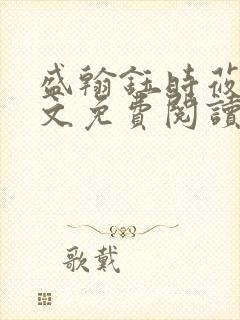 盛翰鈺時莜
文免費閱讀
歌戴